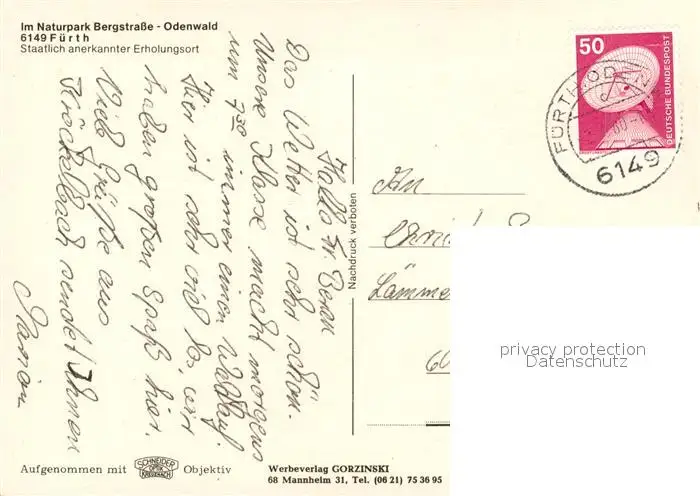 Im Naturpark Bergstraße - Odenwald
6149 Fürth
Staatlich anerkannter Erholungsort
Hallo Fr. Beran
Das Wetter ist sehr schön.
Unsere Klasse macht morgens
um 7.30 immer einen Waldlauf.
Hier ist sehr viel los, wir
haben großen Spaß hier.
Viele Grüße aus
Kröckelbach sendet Ihnen
Nachdruck verboten
50
DEUTSCHE BUNDESPOST
FÜRTH, ODENW
6149
An
Lämme
60
privacy protection
Datenschutz
Aufgenommen mit SCHNEIDER KREUZNACH Objektiv
Werbeverlag GORZINSKI
68 Mannheim 31, Tel. (06 21) 75 36 95